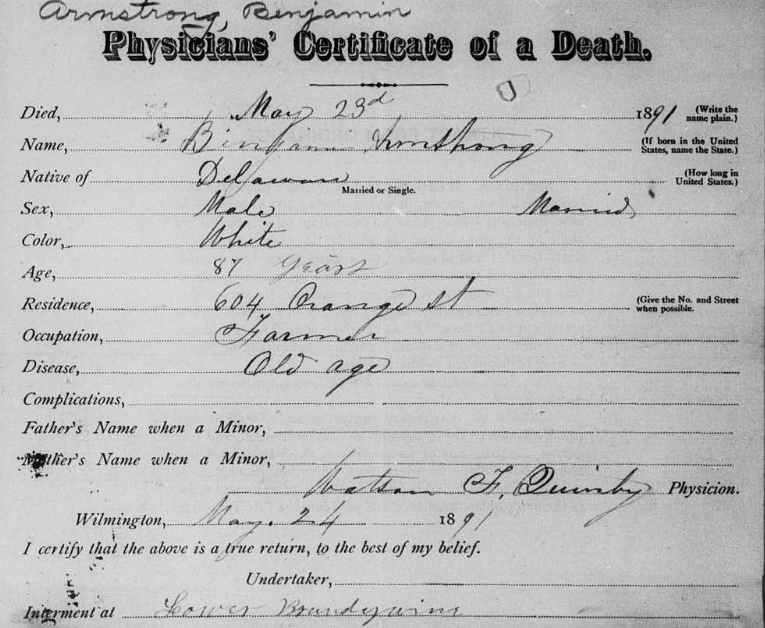 Armstrong, Benjamin
Physicians' Certificate of a Death.
Died, May 23d 1891 (Write the name plain.)
Name, Benjamin Armstrong (If born in the United States, name the State.)
Native of Delaware (How long in United States.)
Married or Single.
Sex, Male Married
Color, White
Age, 87 Years
Residence, 604 Orange St (Give the No. and Street when possible.
Occupation, Farmer
Disease, Old age
Complications,
Father's Name when a Minor,
Mother's Name when a Minor,
Watson F. Quinby Physicion.
Wilmington, May. 24 1891
I certify that the above is a true return, to the best of my belief.
Undertaker,
Interment at Lower Brandywine